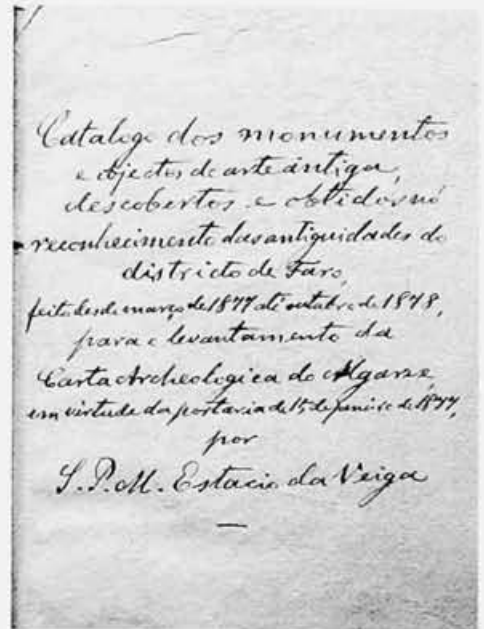 Catalogo dos monumentos
e objectos de arte antiga,
descobertos e obtidos nó
reconhecimento das antiguidades do
districto de Faro,
feito desde março de 1877 até outubro de 1878,
para o levantamento da
Carta Archeologica do Algarve,
em virtude da portaria de 15 de janeiro de 1877,
por
S. P. M. Estacio da Veiga